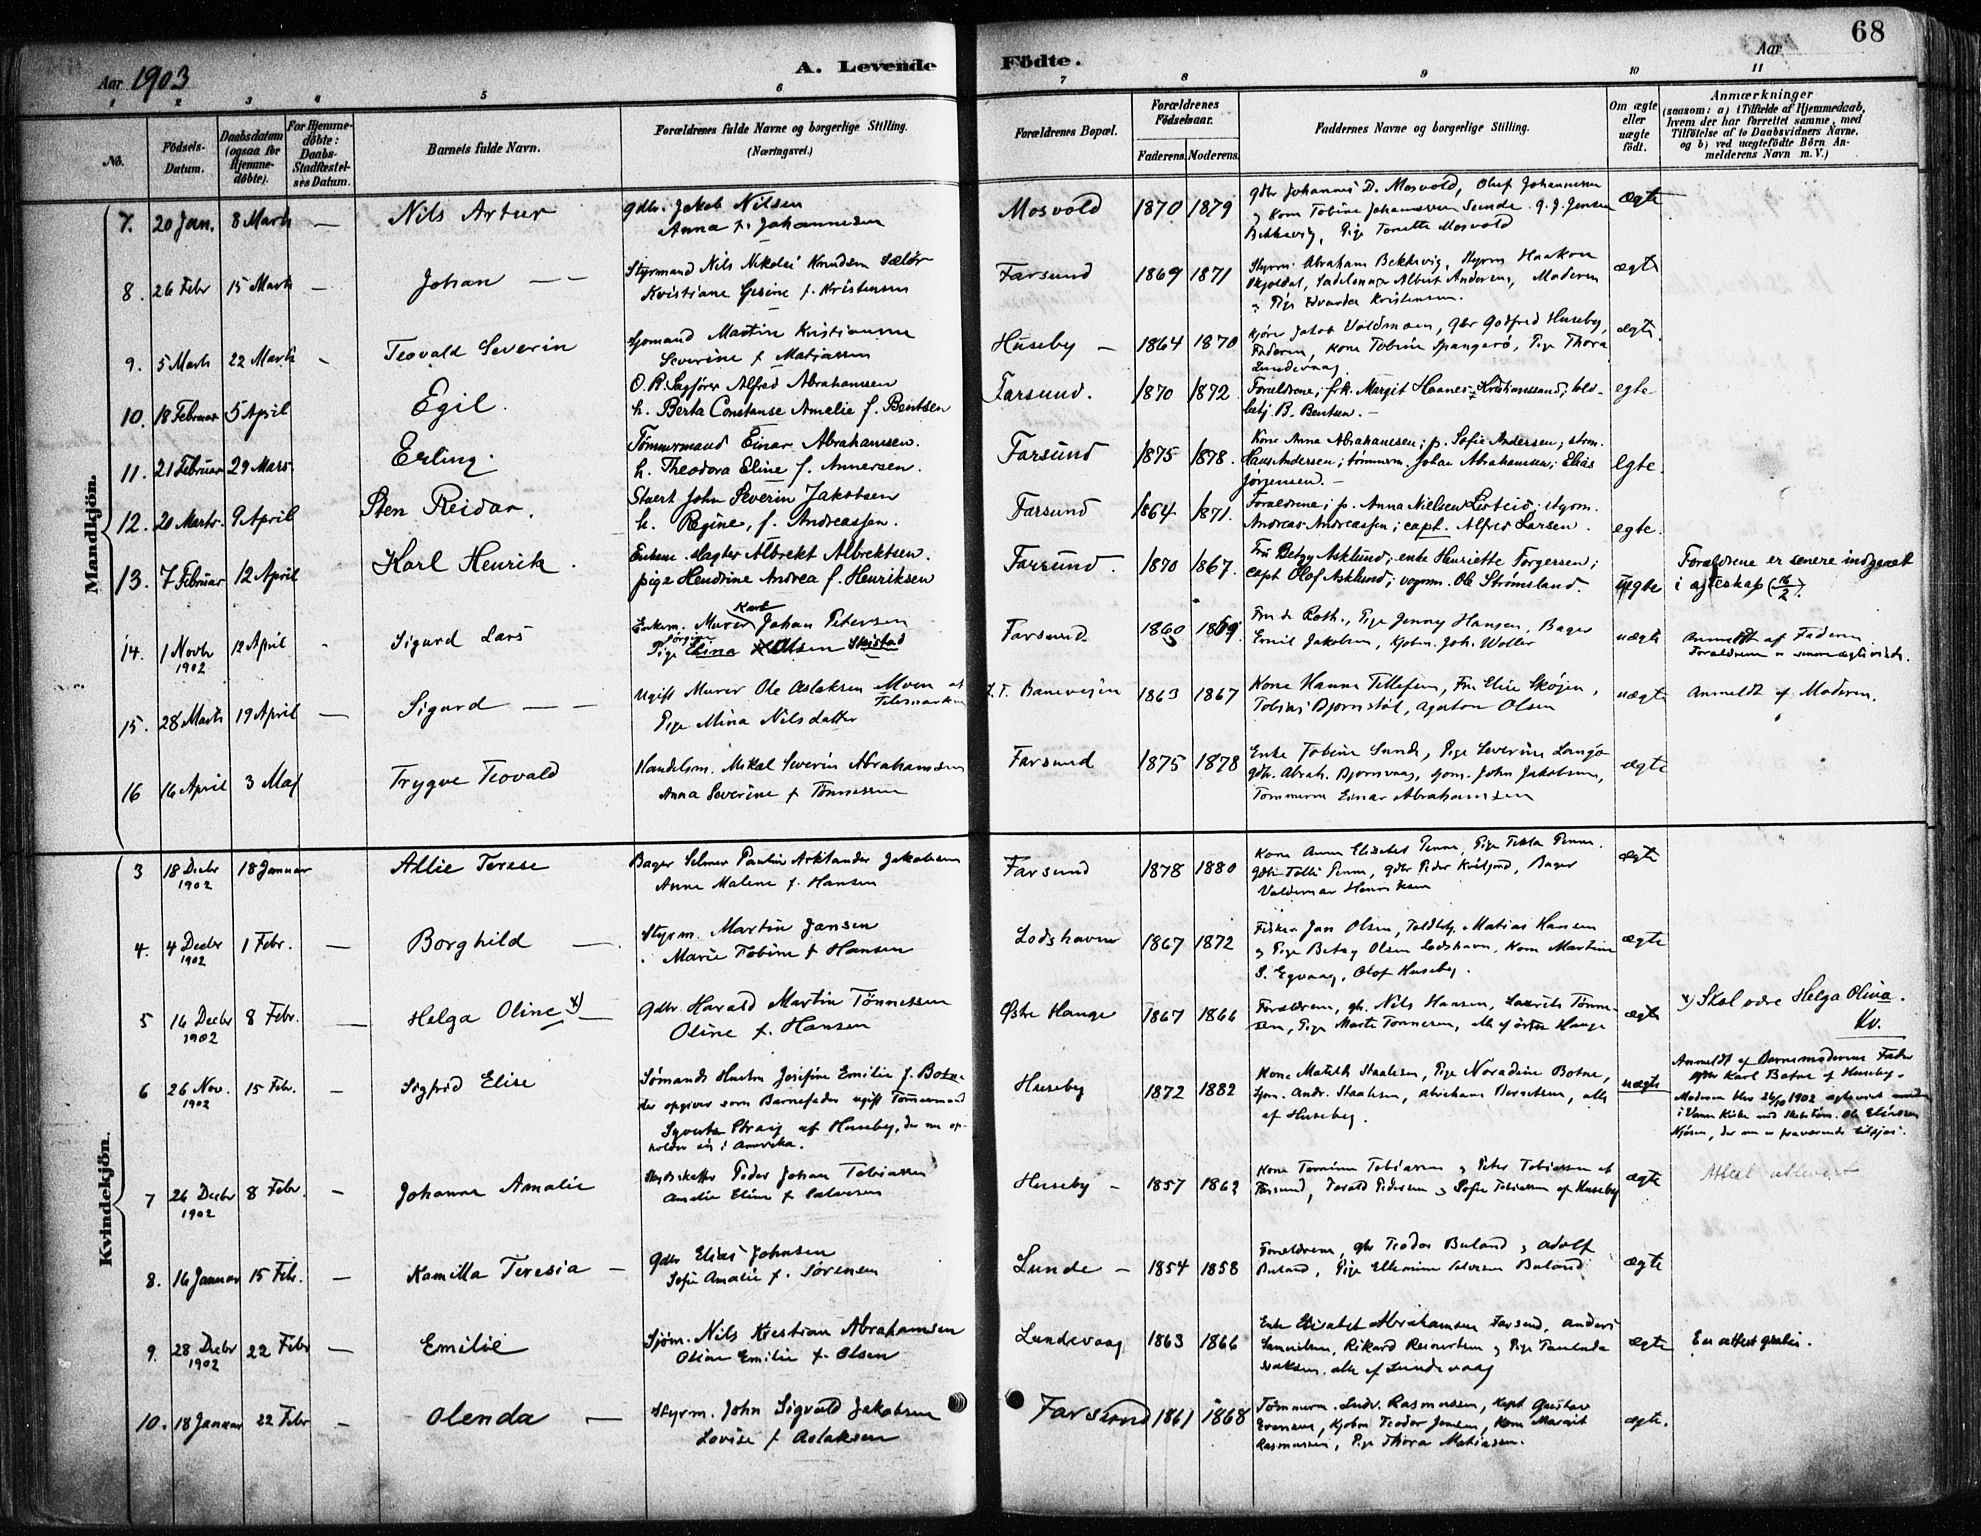 68
Aar 1903
A. Levende Födte.
Aar
1 2 3 4 5 6 7 8 9 10 11
No.
Födsels-Datum.
Daabsdatum (ogsaa for Hjemme-döbte).
For Hjemme-döbte: Daabs-Stadfæstel-ses Datum.
Barnets fulde Navn.
Forældrenes fulde Navne og borgerlige Stilling.
(Næringsvei.)
Forældrenes Bopæl.
Forældrenes Födselsaar.
Faderens Moderens
Faddernes Navne og borgerlige Stilling.
Om ægte eller uægte födt.
Anmærkninger
(saasom: a) i Tilfælde af Hjemmedaab, hvem der har forrettet samme, med Tilföielse af to Daabsvidners Navne, og b) ved uægtefödte Börn An-melderens Navn m. V.)
Mandkjön.
7. 20 Jan. 8 Marts — Nils Artur
Gdbr. Jakob Nilsen
Anna f. Johannesen
Mosvold 1870 1879
Gdbr Johannes D. Mosvold, Oluf Johannesen
og Kone Tobine Johannesen Sunde
Pige Tonette Mosvold
ægte
8. 26 Febr 15 Marts — Johan — —
Styrmand Nils Nikolai Knudsen Sælør
Kristiane Gesine f. Kristensen
Farsund 1869 1871
Styrm. Abraham Bekkevig, Styrm Haakon
Skjoldal, Sadelmager Albert Andersen, Moderen
og Pige Edvarda Kristensen.
ægte
9. 5 Marts 22 Marts - Teovald Severin
Sjømand Martin Kristiansen
Severine f. Matiassen
Huseby — 1864 1870
Jakob Voldmoen, Gbr Godfred Huseby,
Faderen, Kone Tobine Spangerø, Pige Thora
Lundevaag
ægte
10. 18 Februar 5 April Egil.
O. R. Sagfører Alfred Abrahamsen
h. Berta Constanse Amelie f. Bentsen
Farsund. 1870 1872
Forældrene; frk. Margit Haanes, Kristianssand; told-
betj. B. Bentsen. —
egte
11. 21 Februar 29 Mars. Erling.
Tømmermand Einar Abrahamsen.
h. Theodora Eline f. Annersen.
Farsund 1875 1878.
Kone Anna Abrahamsen; p. Sofie Andersen; strm.
Hans Andersen; tømmerm. Johan Abrahamsen; Elias
Jørgensen. —
egte.
12. 20 Marts. 9 April Sten Reidar.
Stuert John Severin Jakobsen
h. Regine, f. Andreassen.
Farsund 1864 1871.
Forældrene; p. Anna Nielsen; styrm.
Andreas Andreassen; capt. Alfred Larsen.
egte.
13. 7 Februar 12 April Karl Henrik.
Enkem. slagter Albrekt Albrektsen.
pige Hendrine Andrea f. Henriksen
Farsund. 1870 1867.
Fru Betzy Asklund; enke Henriette Torgersen;
capt Olof Asklund; vognm. Ole Strømsland.
uegte
Forældrene er senere indgaaet
i ægteskap (16/2).
14. 1 Novbr 1902 12 April - Sigurd Lars
Enkem. Murer Karl Johan Petersen
Pige Elina Olsen
Farsund 1860 1869
Fru de Roth., Pige Jenny Hansen, Bager
Emil Jakobsen, Kjøbm. Joh. Woller
uægte
Anmeldt af Faderen
15. 28 Marts 19 April — Sigurd — —
Ugift Murer Ole Aslaksen Moen af
Telemarken
Pige Mina Nilsdatter
Banevejen 1863 1867
Kone Hanna Tellefsen, Fru Elise Skøjen,
Tobias Bjørnstøl, Agaton Olsen
uægte
Anmeldt af Moderen.
16 16 April 3 Maj Trygve Teovald
Handelsm. Mikal Severin Abrahamsen
Anna Severine f. Tønnessen
Farsund 1875 1878
Enke Tobine Sunde, Pige Severine
Gdbr. Abrah. Bjørnevaag, sjøm. John Jakobsen,
Tømmerm Einar Abrahamsen
ægte
Kvindekjön.
3 18 Decbr 1902 18 Januar Allie Terese
Bager Selmer Paulin Jakobsen
Anne Malene f. Hansen
Farsund 1878 1880
Kone Anne Elisabet Penne, Pige Tekla Penne.
Gdbr Tolli Penne, Gdbr Peder, Bager
Valdemar Henriksen
ægte
4. 4 Decbr 1902 1 Febr. — Borghild —
Styrm. Martin Jansen
Marie Tobine f. Hansen
Lodshavn 1867 1872
Fisker Jan Olsen, Toldbtj. Matias Hansen
og Pige Betsy Olsen Lodshavn, Kone Martine
S. Egvaag, Olof Huseby.
ægte
5 16 Decbr 1902 8 Febr. — Helga Oline x) —
Gdbr Harald Martin Tönnessen
Oline f. Hansen
Østre Hauge 1867 1866
Forældrene, gbr. Nils Hansen, Laurits Tønne-
sen, Pige Marte Tønnesen, alle af Østre Hauge
ægte
x) Skal være Helga Olina.
Kv.
6 26 Nov. 1902 15 Febr. — Sigfrid Elise
Sømands Hustru Josefine Emilie f. Botne
der opgiver som Barnefader ugift Tømmermand
Syvert af Huseby, der nu op-
holder sig i Amerika.
Huseby 1872 1882
Kone Matilde Staalesen, Pige Noradine Botne,
Sjøm. Andr. Staalesen, Abraham Berntsen, alle
af Huseby.
uægte
Anmeldt af Barnemoderens Fader
Gdbr Karl Botne af Huseby.
Moderen blev 26/10 1902
7 26 Decbr 1902 8 Febr. — Johanna Amalie
Peder Johan Tobiassen
Amalie Eline f. Salvesen
Huseby — 1857 1862
Kone Tomine Tobiassen og Peter Tobiassen af
Farsund, Pedersen og Sofie Tobiassen af Huseby
ægte
Attest utlevert
8. 16 Januar 15 Feb. — Kamilla Teresia —
Gdbr Elias Johnsen
Sofie Amalie f. Sørensen
Lunde — 1854 1858
Forældrene, gbr Teodor Buland og Adolf
Buland, Pige Ellemine Salvesen Buland
ægte
9. 28 Decbr 1902 22 Febr — Emilie
Sjøm. Nils Kristian Abrahamsen
Oline Emilie f. Olsen
Lundevaag 1863 1866
Enke Elisabet Abrahamsen Farsund, Anders
Samuelsen, Rikard og Pige Paulnda
Isaksen. alle af Lundevaag
ægte
En attest gratis.
10. 18 Januar 22 Febr — Olenda —
Styrm. John Sigvald Jakobsen
Lovise f. Aslaksen
Farsund 1861 1868
Tømmerm. Ludv. Rasmussen, Kapt Gustav
Evensen, Kjøbm Teodor Jensen, Kone Margit
Rasmussen, Pige Thora Matiassen.
ægte.